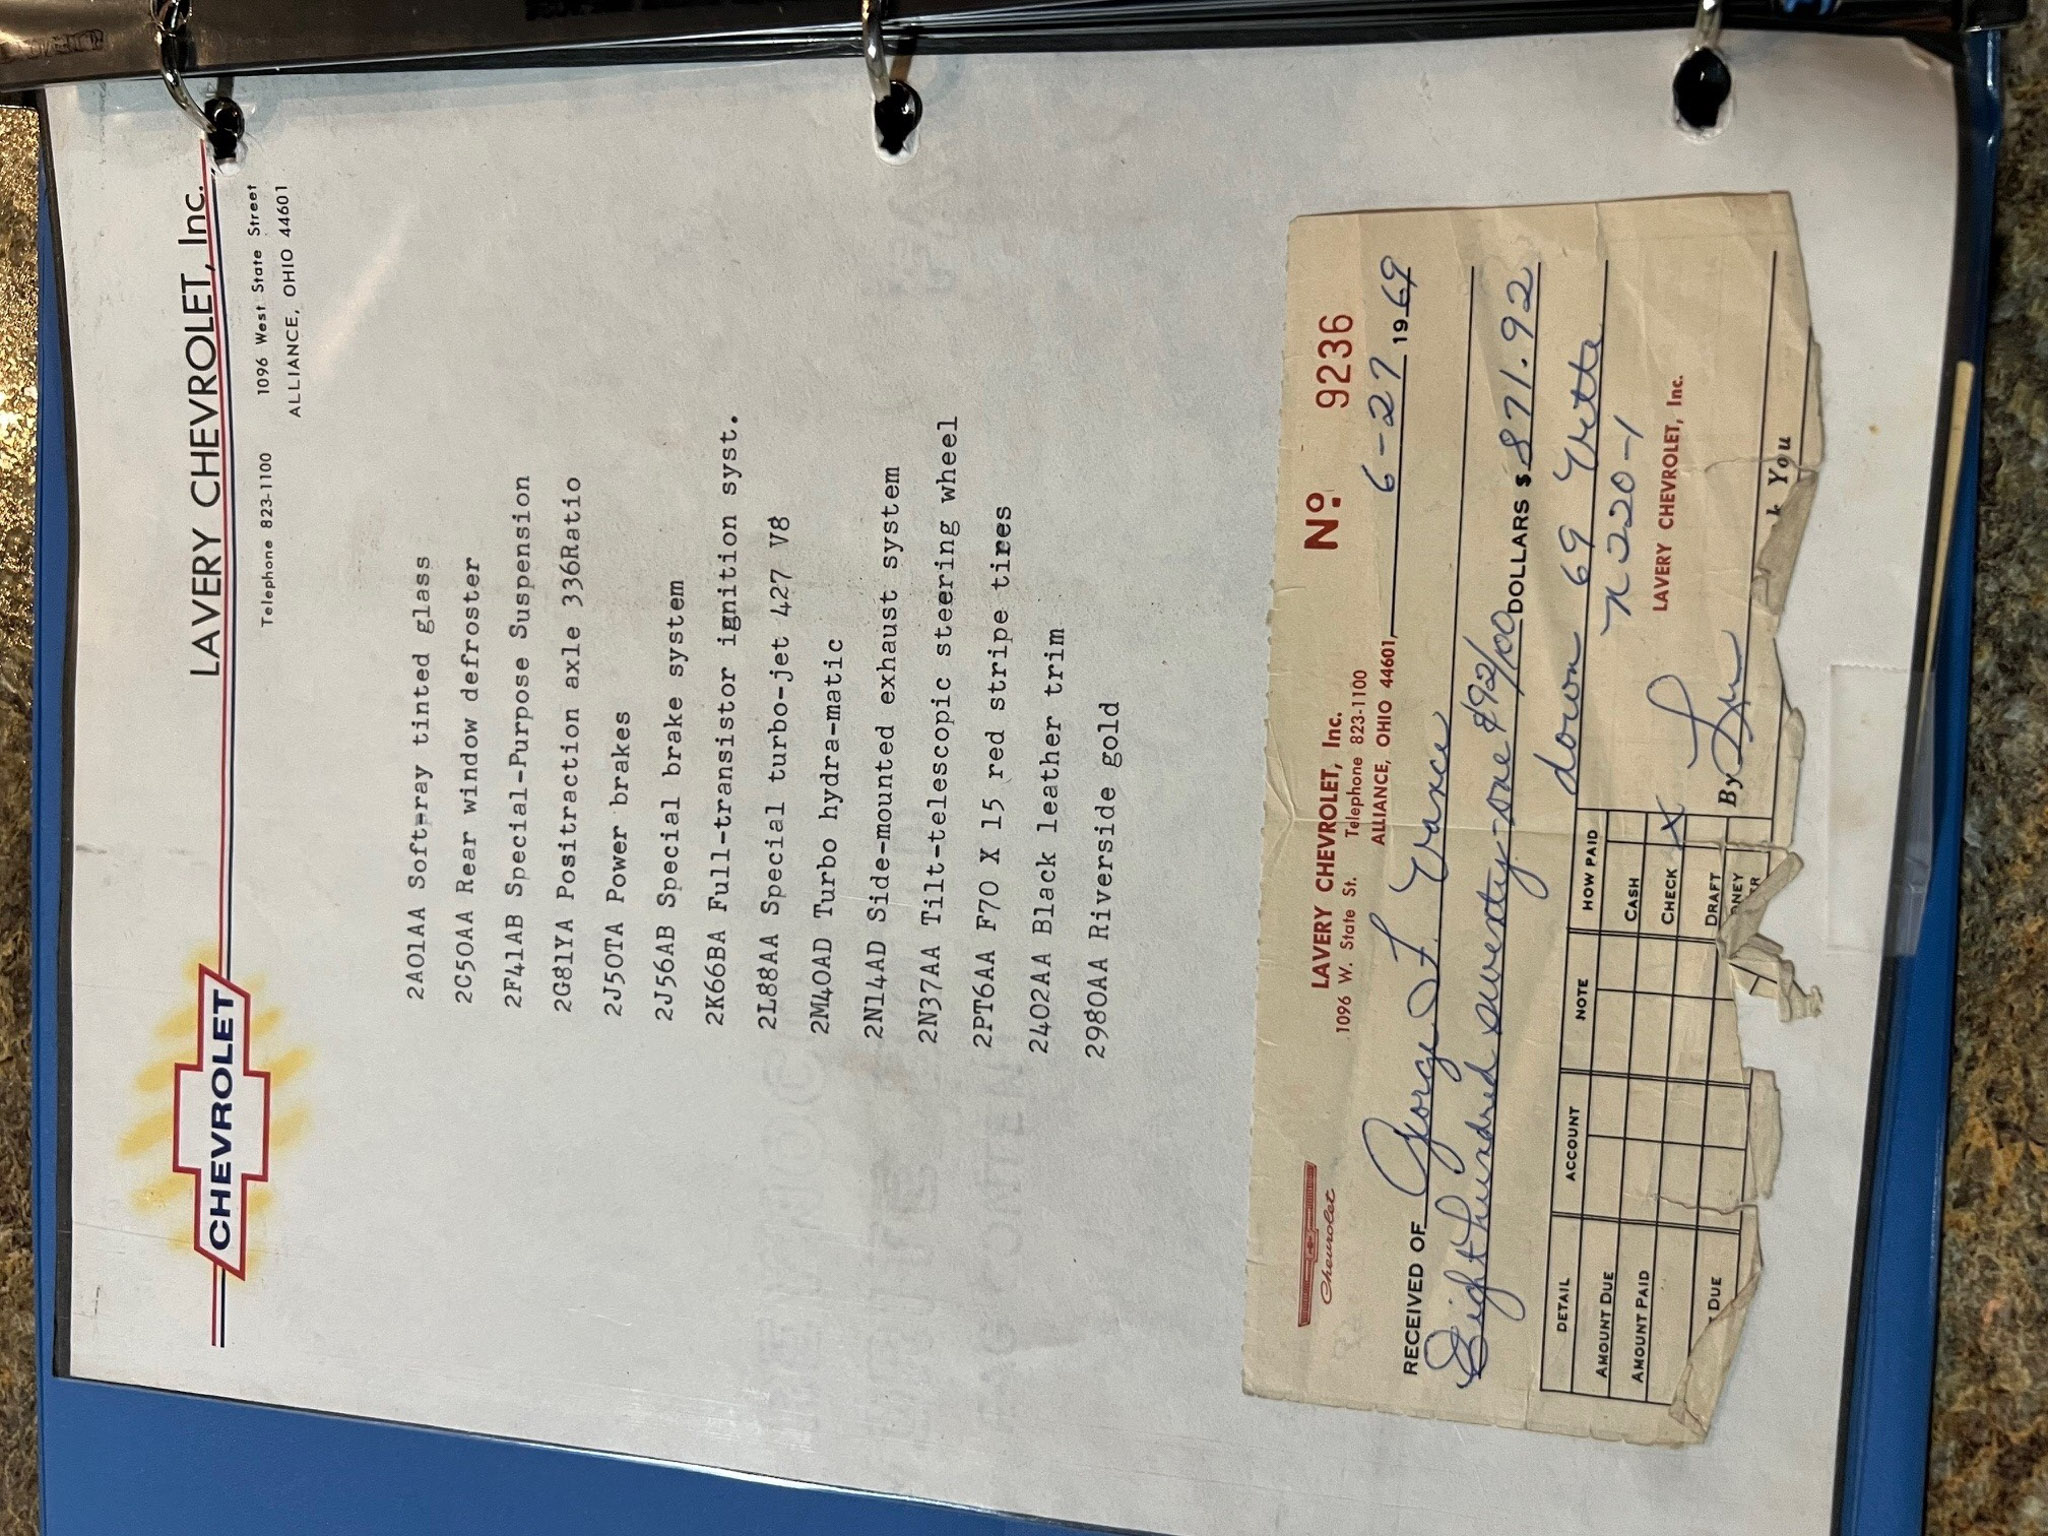 CHEVROLET
LAVERY CHEVROLET, Inc.
Telephone 823-1100 1096 West State Street
ALLIANCE, OHIO 44601
2A01AA Soft-ray tinted glass
2C50AA Rear window defroster
2F41AB Special-Purpose Suspension
2G81YA Positraction axle 336Ratio
2J50TA Power brakes
2J56AB Special brake system
2K66BA Full-transistor ignition syst.
2L88AA Special turbo-jet 427 V8
2M40AD Turbo hydra-matic
2N14AD Side-mounted exhaust system
2N37AA Tilt-telescopic steering wheel
2PT6AA F70 X 15 red stripe tires
2402AA Black leather trim
2980AA Riverside gold
Chevrolet
LAVERY CHEVROLET, Inc.
1096 W. State St. Telephone 823-1100
ALLIANCE, OHIO 44601
No. 9236
6-27 1969
RECEIVED OF George F. Vance
Eight hundred seventy-one & 92/100 DOLLARS $ 871.92
down 69 Vette
N220-1
DETAIL ACCOUNT NOTE HOW PAID
AMOUNT DUE CASH
AMOUNT PAID CHECK X
DUE DRAFT
LAVERY CHEVROLET, Inc.
By
You